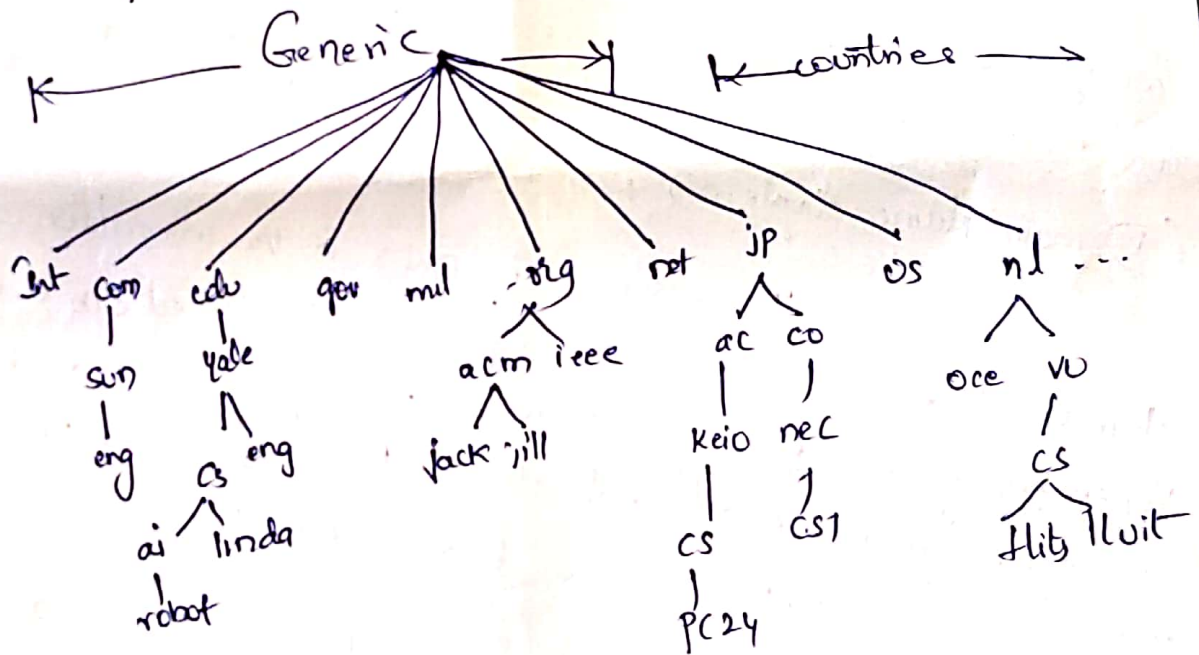 Generic countries
Int com edu gov mil org net jp us nl ...
sun yale acm ieee ac co oce vu
eng cs eng jack jill keio nec cs
ai linda cs csl flits fluit
robot pc24